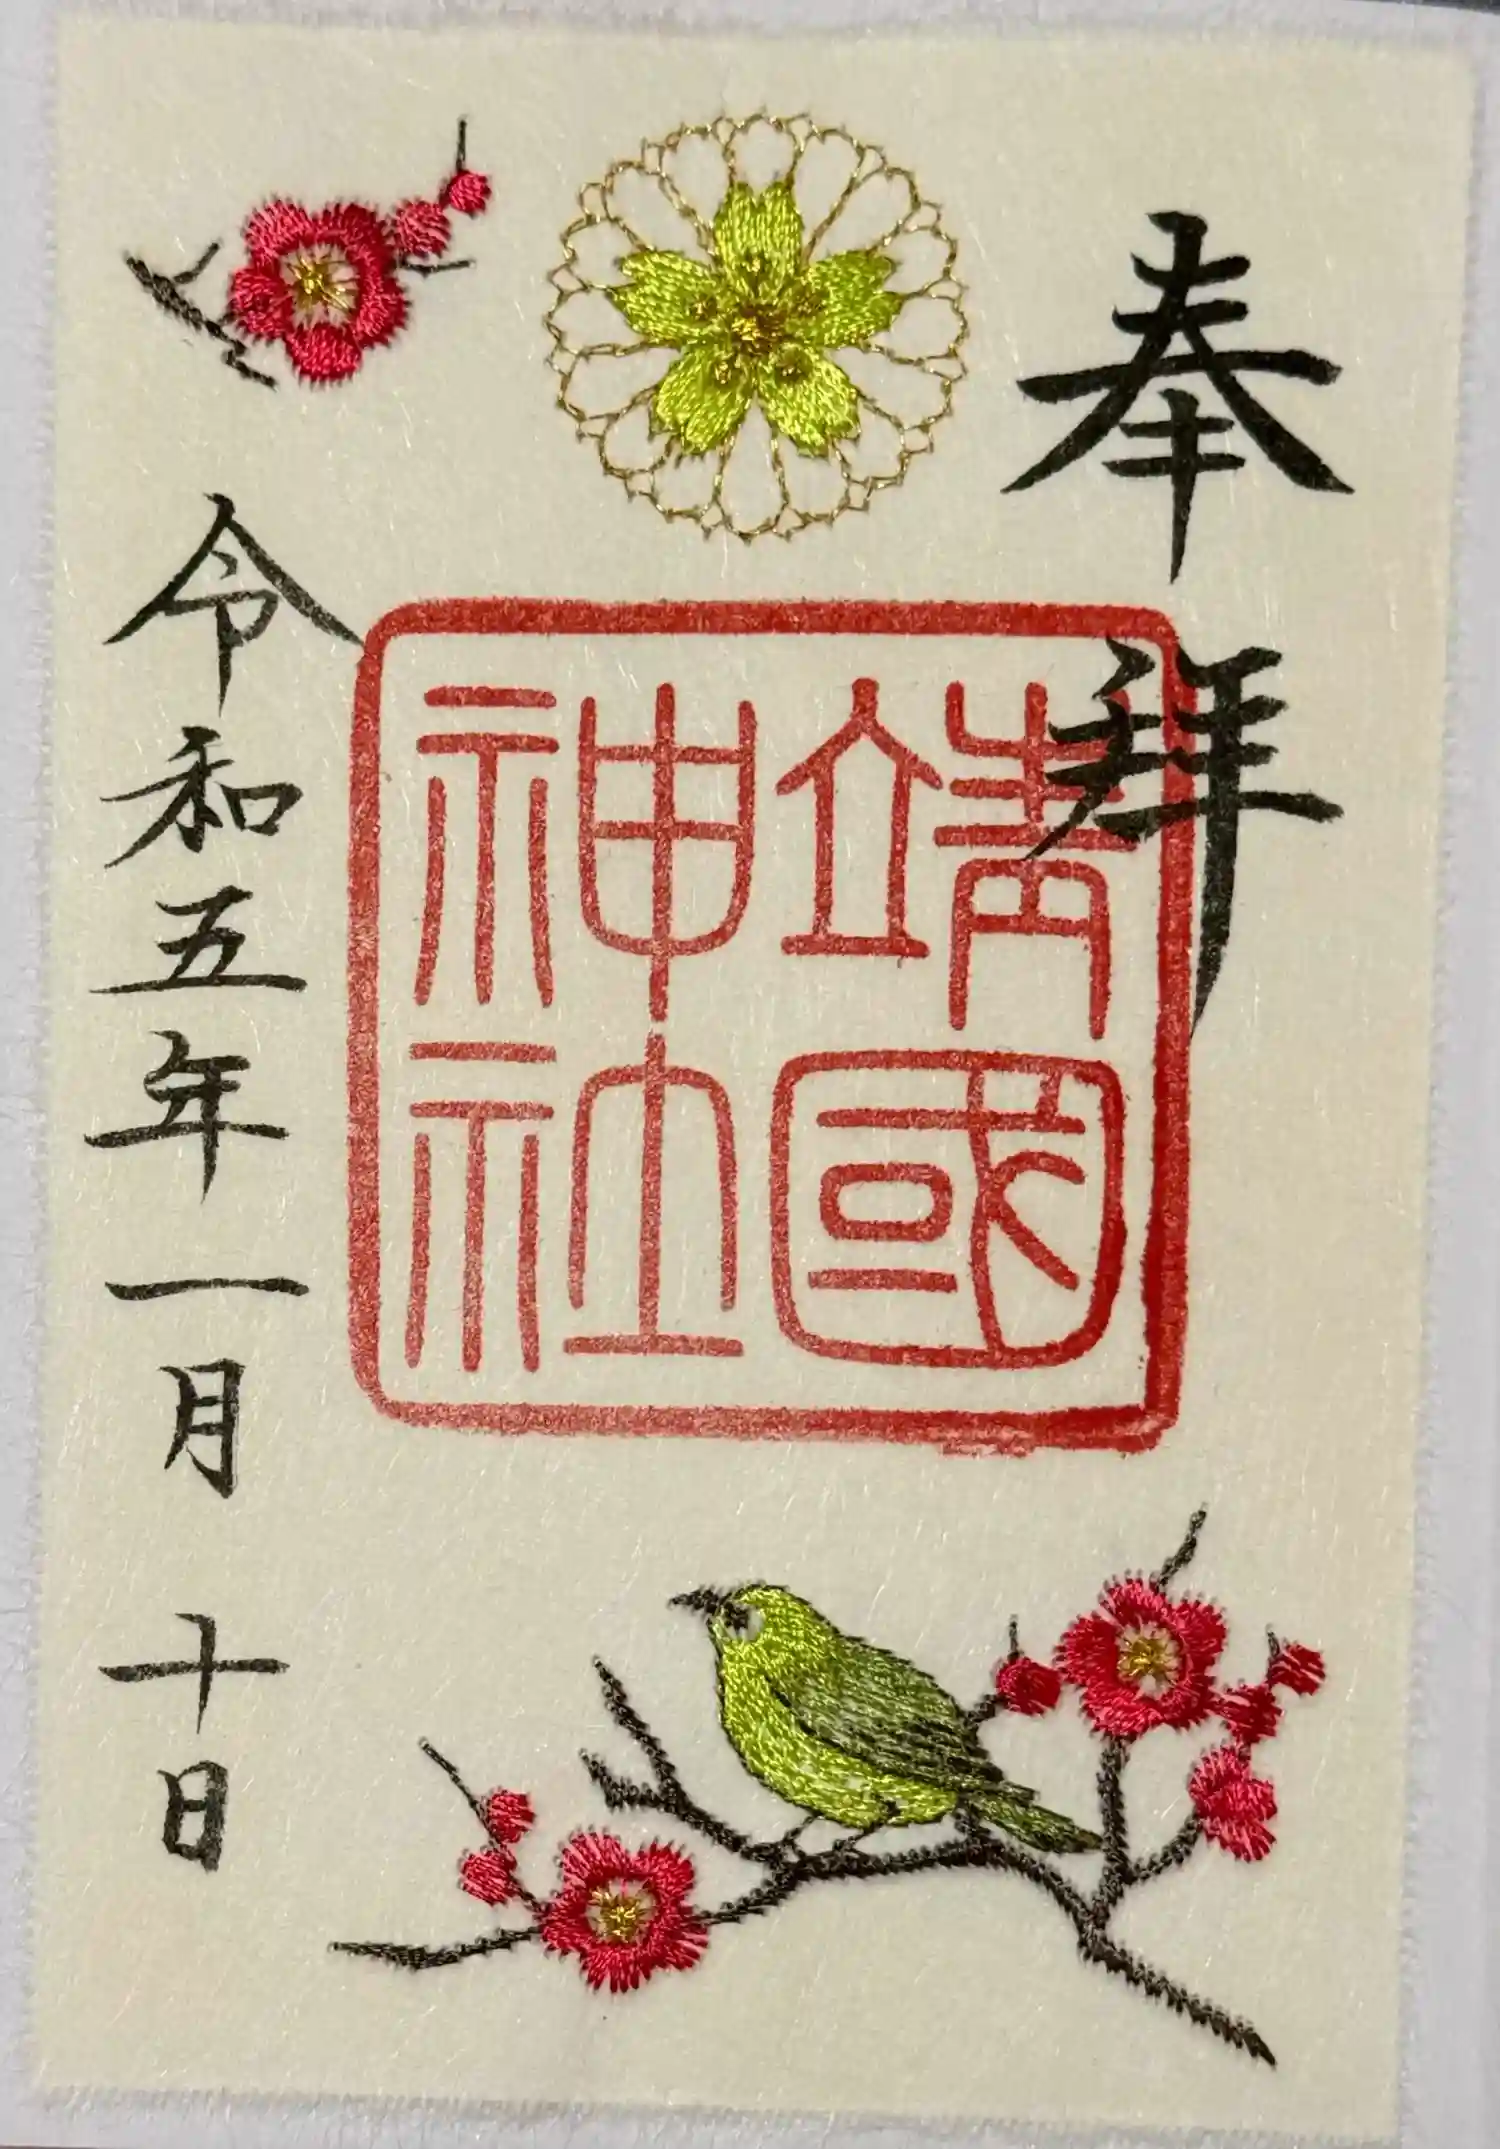 奉拝
靖國
神社
令和五年一月十日